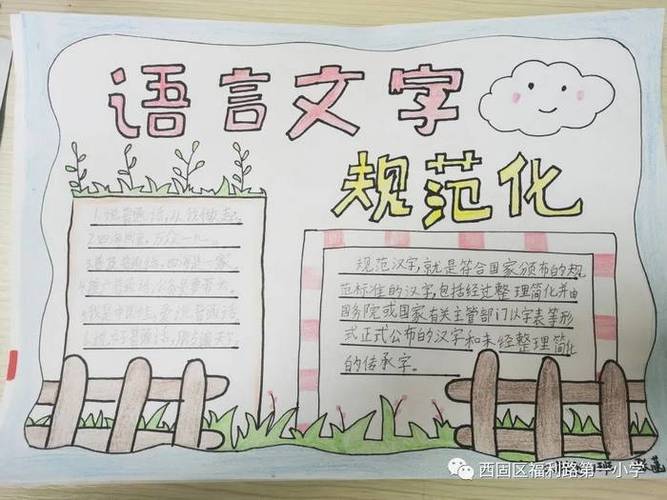 语言文字
规范化
1.说普通话,从我做起。
2.四海同言,万众一心。
3.普及普通话,四海是一家
规范汉字,就是符合国家颁布的规
范标准的汉字,包括经过整理简化并由
国务院或国家有关主管部门以字表等形
式正式公布的汉字和未经整理简化
的传承字。
西固区福利路第一小学